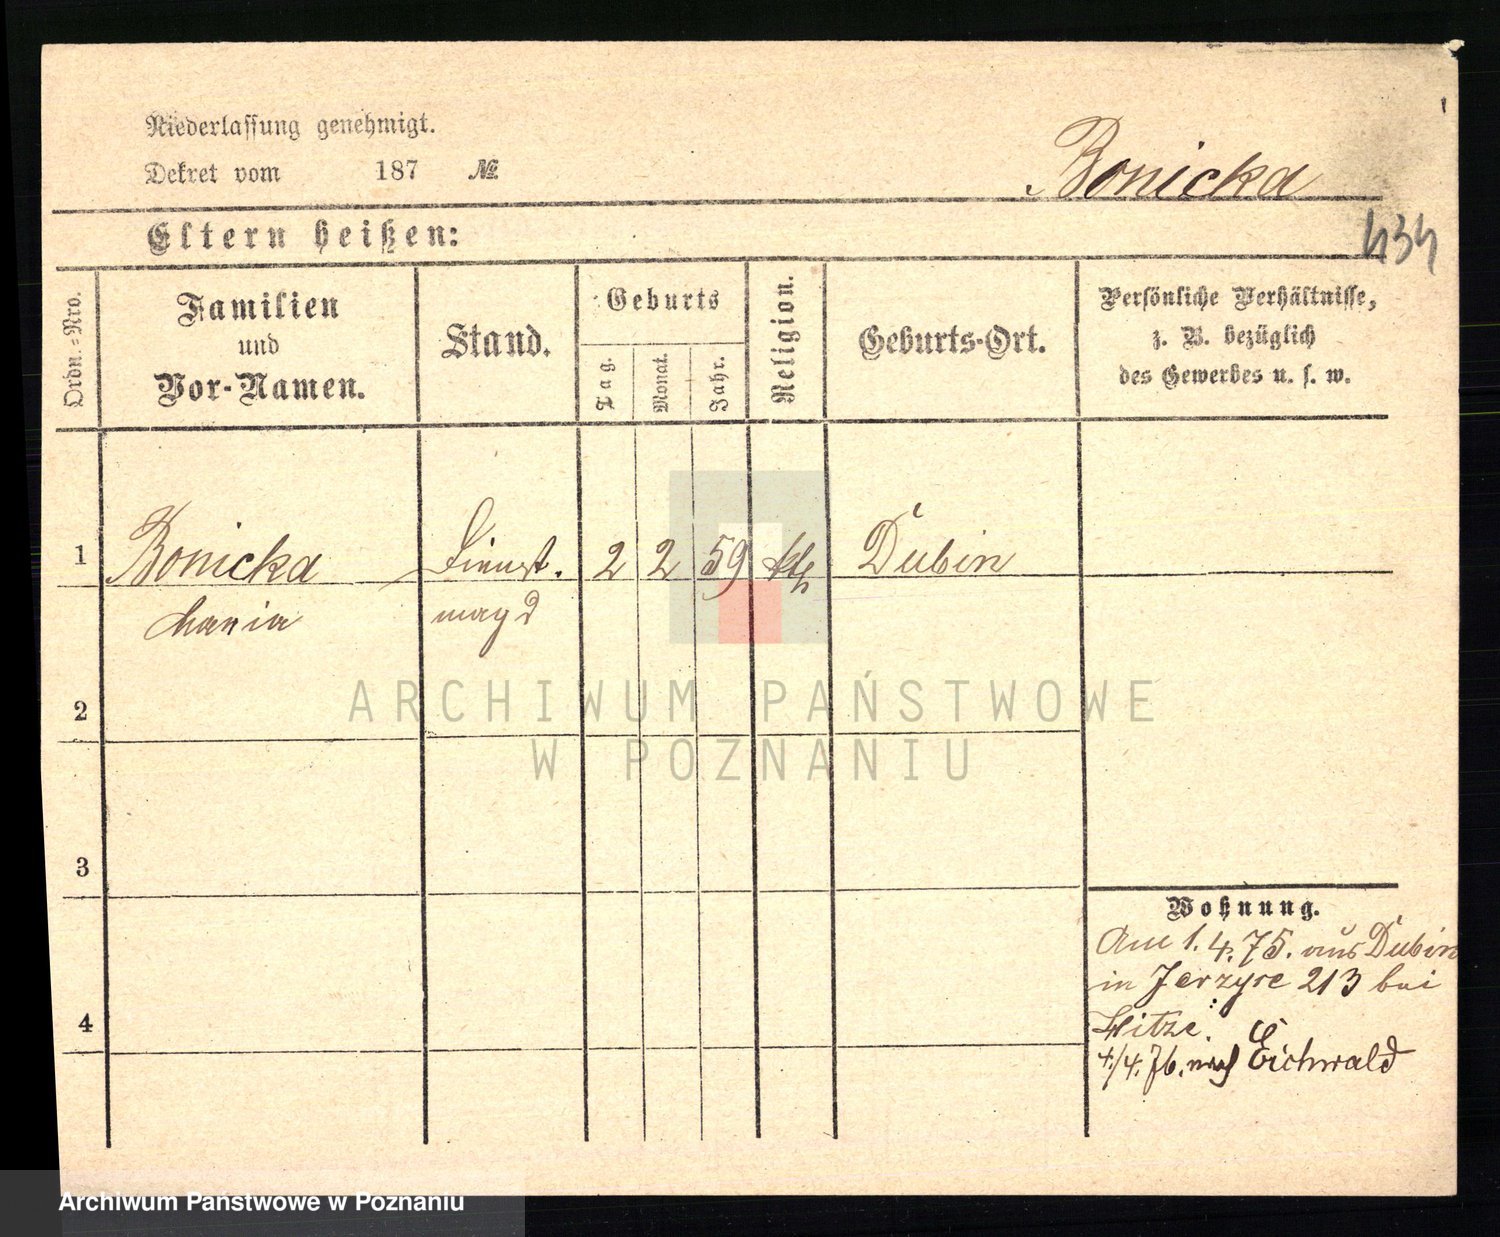 Niederlassung genehmigt.
Dekret vom 187 №
Bonicka
Eltern heißen:
434
Ordn.=Nro.
Familien
und
Vor-Namen.
Stand.
Geburts
Tag.
Monat.
Jahr.
Religion.
Geburts-Ort.
Persönliche Verhältnisse,
z. B. bezüglich
des Gewerbes u. s. w.
1 Bonicka Dienst. 2 2 59 kth Dubin
Maria magd
ARCHIWUM PAŃSTWOWE
2
W POZNANIU
3
Wohnung.
Am 1. 4. 75. aus Dubin
in Jerzyce 213 bei
4
Hitze.
/4. 76. nach Eichwald
Archiwum Państwowe w Poznaniu